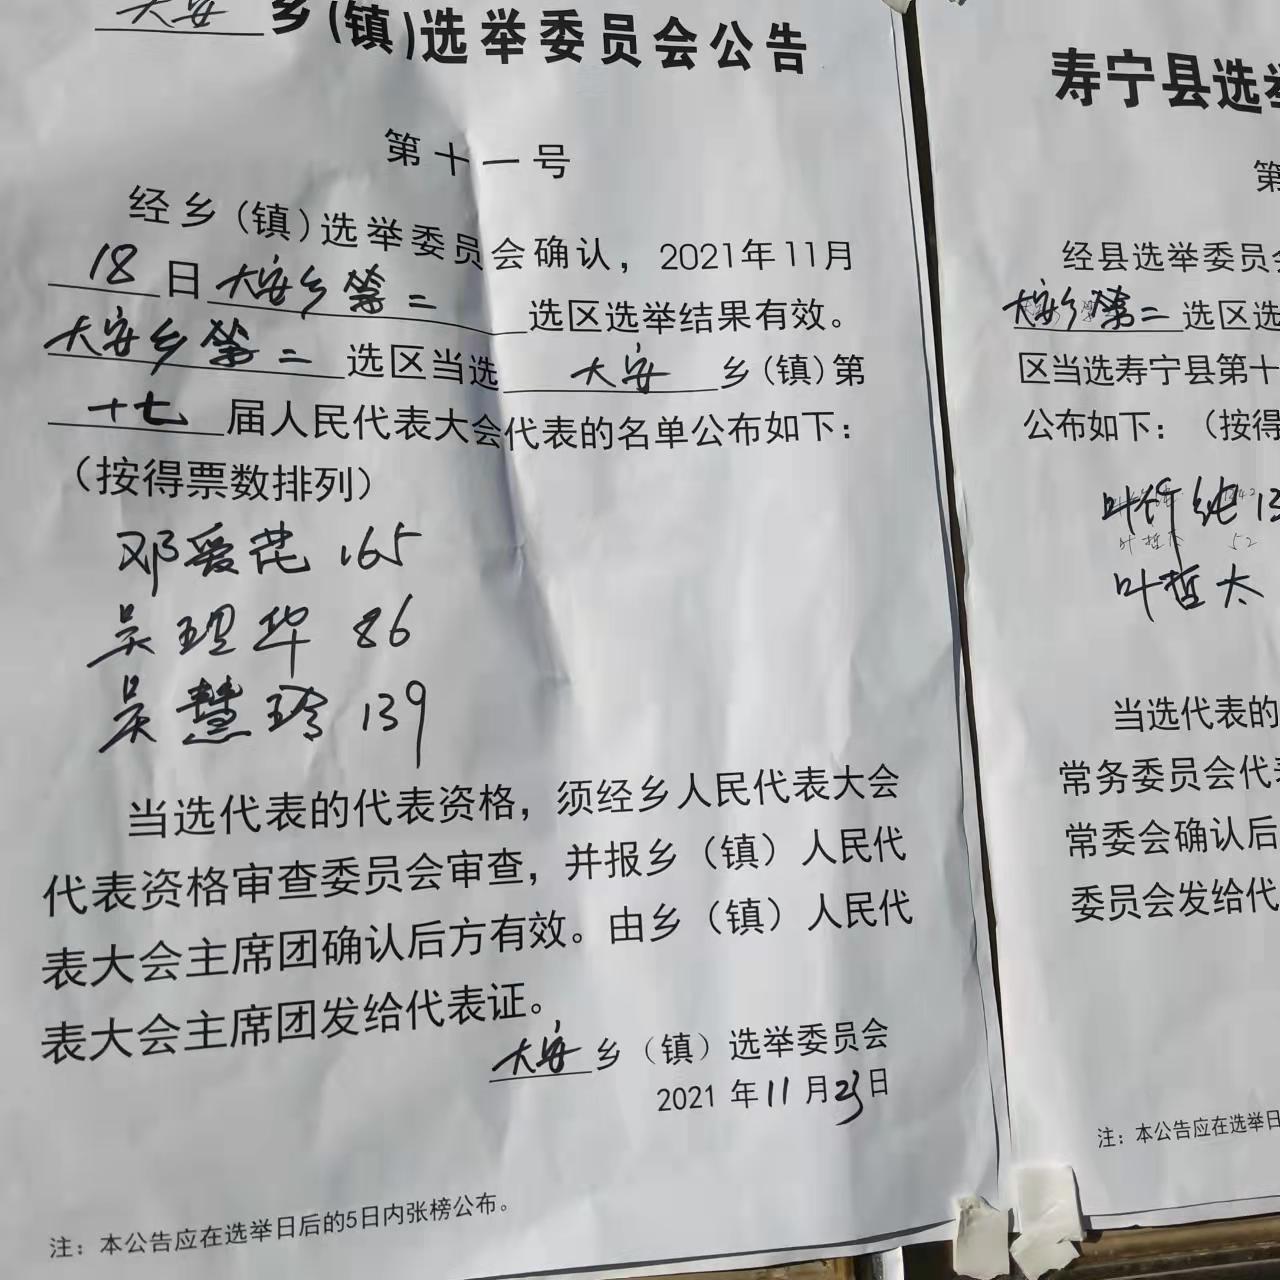 大安乡(镇)选举委员会公告
第十一号
经乡(镇)选举委员会确认，2021年11月
18日大安乡第二选区选举结果有效。
大安乡第二选区当选大安乡(镇)第
十七届人民代表大会代表的名单公布如下：
（按得票数排列）
邓爱芘 165
吴理华 86
吴慧玲 139
当选代表的代表资格，须经乡人民代表大会
代表资格审查委员会审查，并报乡（镇）人民代
表大会主席团确认后方有效。由乡（镇）人民代
表大会主席团发给代表证。
大安乡（镇）选举委员会
2021年11月23日
注：本公告应在选举日后的5日内张榜公布。
寿宁县选举
第
经县选举委员会
大安乡第二选区选
区当选寿宁县第十
公布如下：（按得
叶 纯 13
叶哲太 52
叶哲太
当选代表的
常务委员会代表
常委会确认后
委员会发给代
注：本公告应在选举日